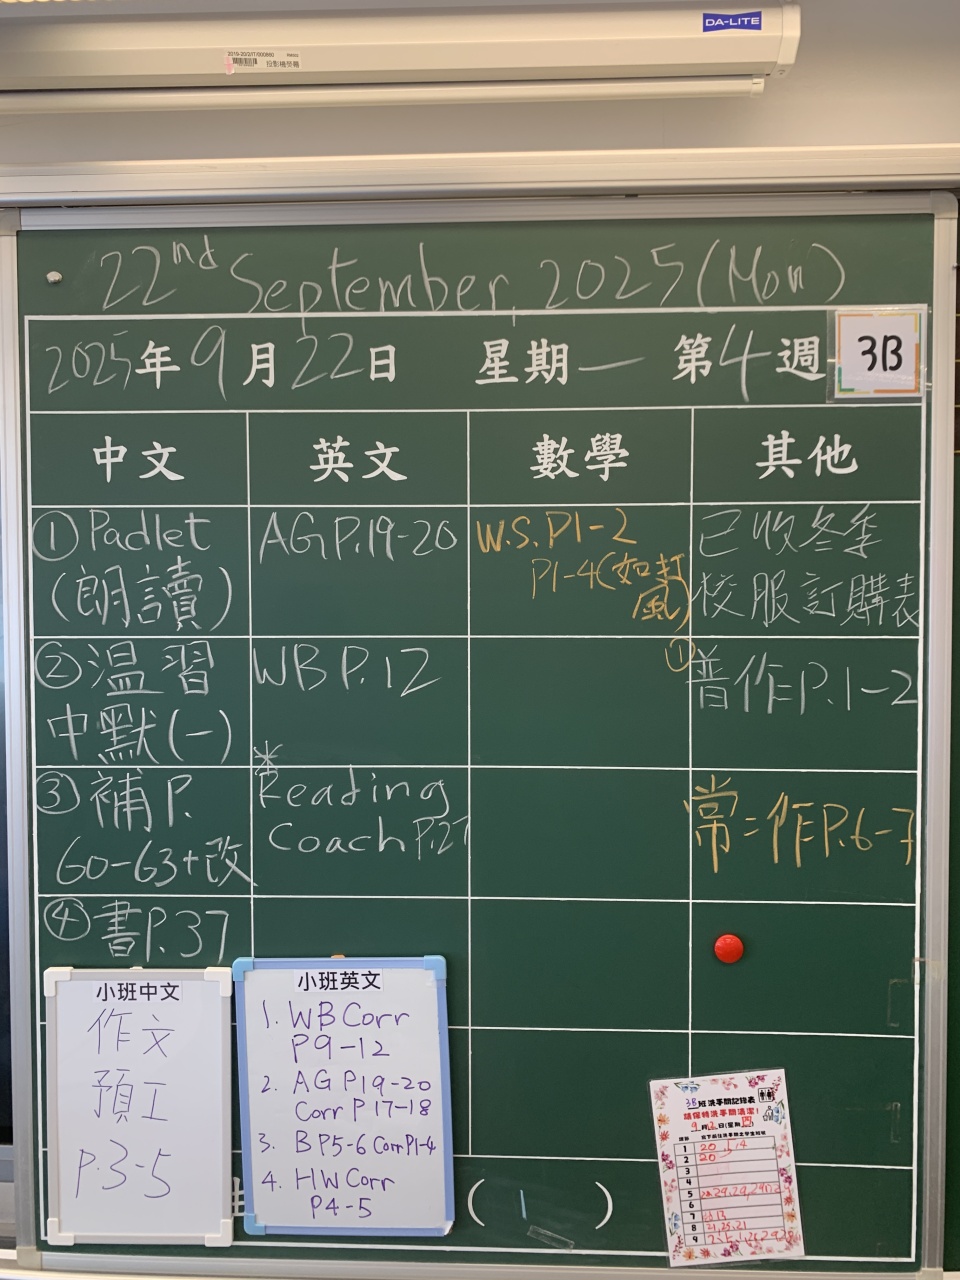 DA-LITE
投影機熒幕
22nd September, 2025 (Mon)
2025年9月22日 星期一 第4週
3B
中文 英文 數學 其他
①Padlet
(朗讀)
②温習
中默(一)
③補P.
60-63+改
④書P.37
AGP.19-20
WBP.12
*
Reading
Coach P.27
W.S.P1-2
P1-4(如打
風)
已收冬季
校服訂購表
①
普作P.1-2
常=作P.6-7
小班中文
作文
預工
P.3-5
小班英文
1. WB Corr
P9-12
2. AG P19-20
Corr P17-18
3. B P5-6 Corr P1-4
4. HW Corr
P4-5
( | )
3B班洗手間記錄表
請保持洗手間清潔!
1
2 20
3
4
5
6
7
8 21,25,21
9